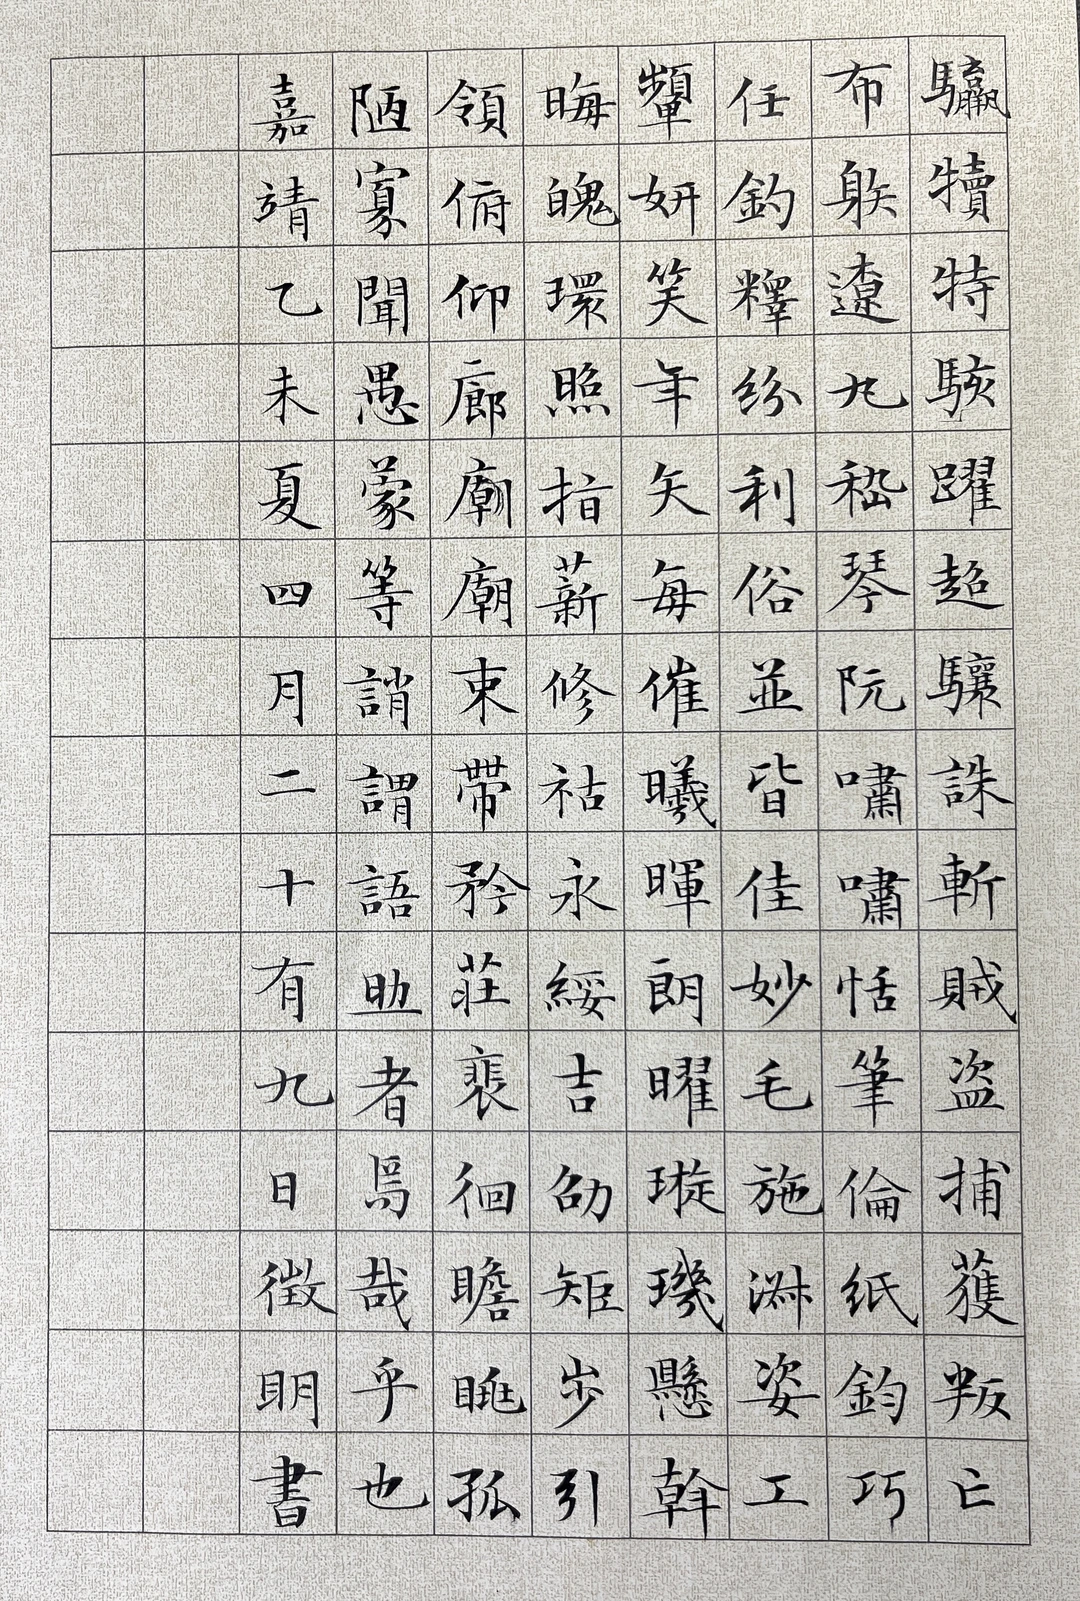 驘犢特駭躍超驤誅斬賊盜捕獲叛亡
布躲遼丸嵇琴阮嘯嘯恬筆倫紙鈞巧
任釣釋紛利俗並皆佳妙毛施淋姿工
顰妍笑年矢每催曦暉朗曜璇璣懸斡
晦魄環照指薪修祜永綏吉劭矩步引
領俯仰廊廟廟束帶矜莊裴徊瞻眺孤
陋寡聞愚蒙等誚謂語助者焉哉乎也
嘉靖乙未夏四月二十有九日徵明書